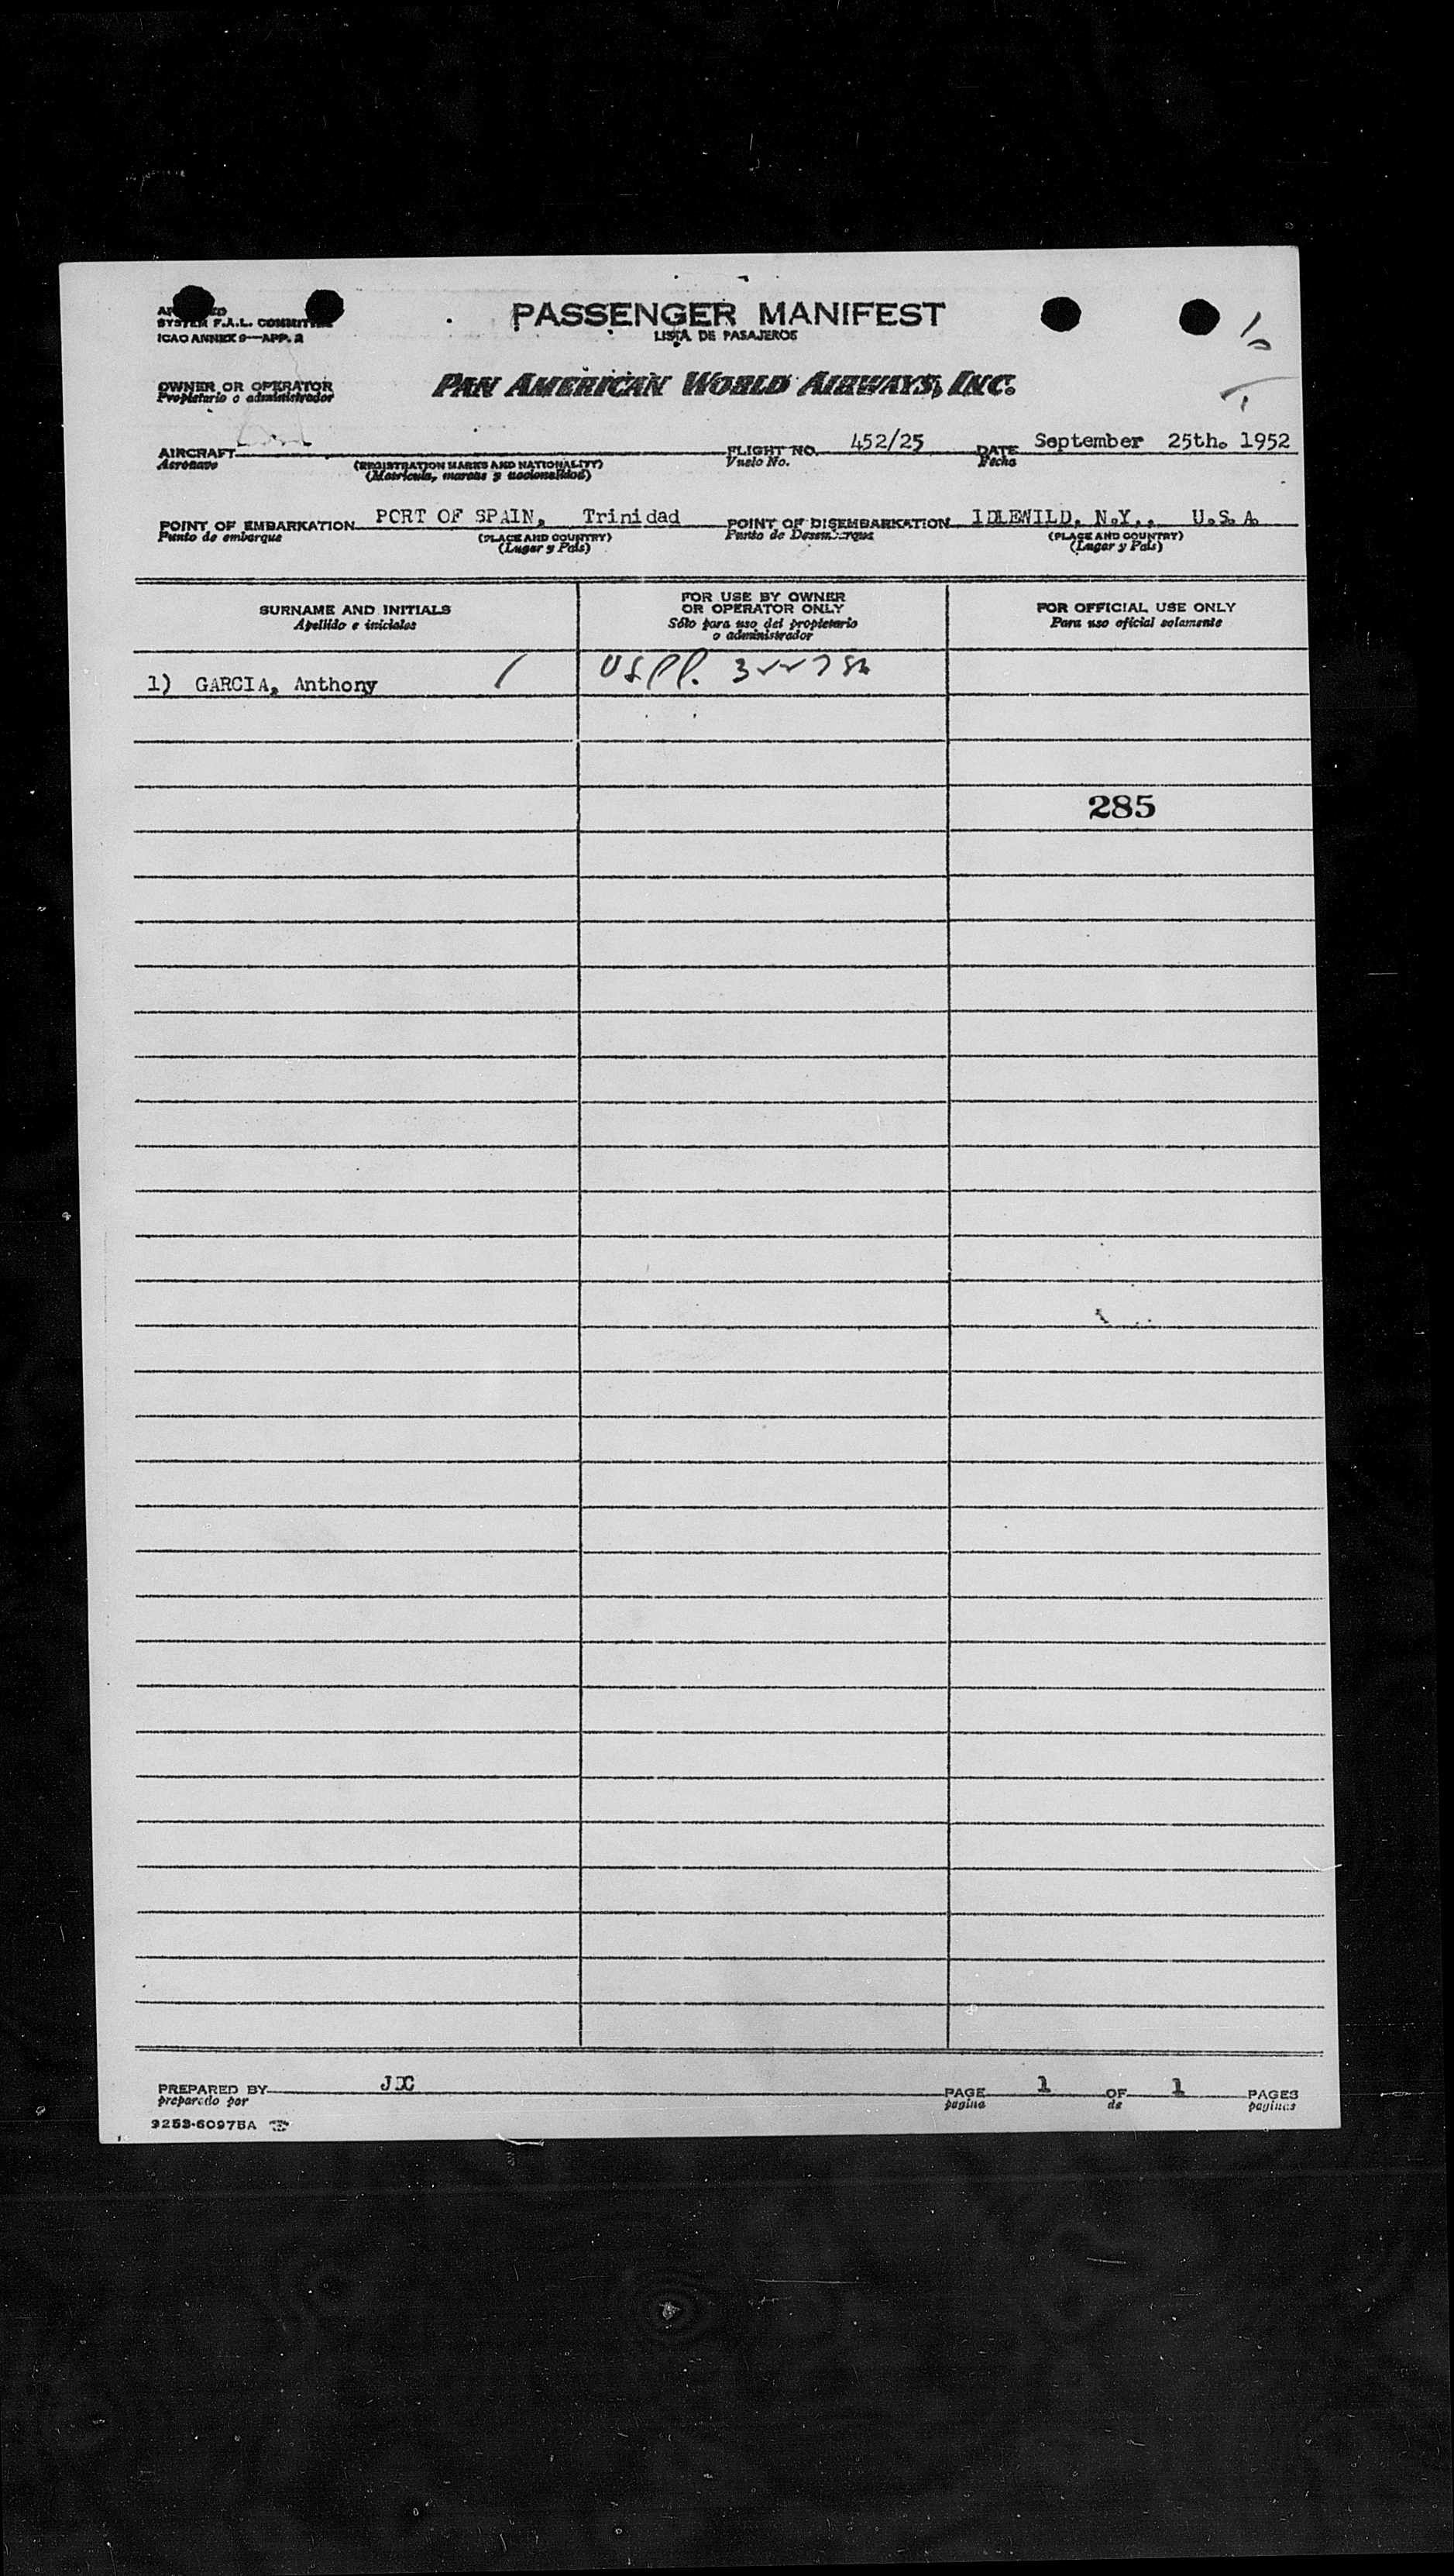 PASSENGER MANIFEST
LISTA DE PASAJEROS
SYSTEM F.A.L. COMMITTEE
ICAO ANNEX 9—APP. 2
OWNER OR OPERATOR
Propietario o administrador
PAN AMERICAN WORLD AIRWAYS, INC.
AIRCRAFT FLIGHT NO. 452/25 DATE September 25th. 1952
Aeronave Vuelo No. Fecha
(REGISTRATION MARKS AND NATIONALITY)
(Matricula, marcas y nacionalidad)
POINT OF EMBARKATION PORT OF SPAIN, Trinidad POINT OF DISEMBARKATION IDLEWILD, N.Y., U.S.A.
Punto de embarque (PLACE AND COUNTRY) Punto de Desembarque (PLACE AND COUNTRY)
(Lugar y Pais) (Lugar y Pais)
SURNAME AND INITIALS
Apellido e iniciales
FOR USE BY OWNER
OR OPERATOR ONLY
Sólo para uso del propietario
o administrador
FOR OFFICIAL USE ONLY
Para uso oficial solamente
1) GARCIA, Anthony
285
PREPARED BY PAGE 1 OF 1 PAGES
preparado por pagina de paginas
9253-60975A